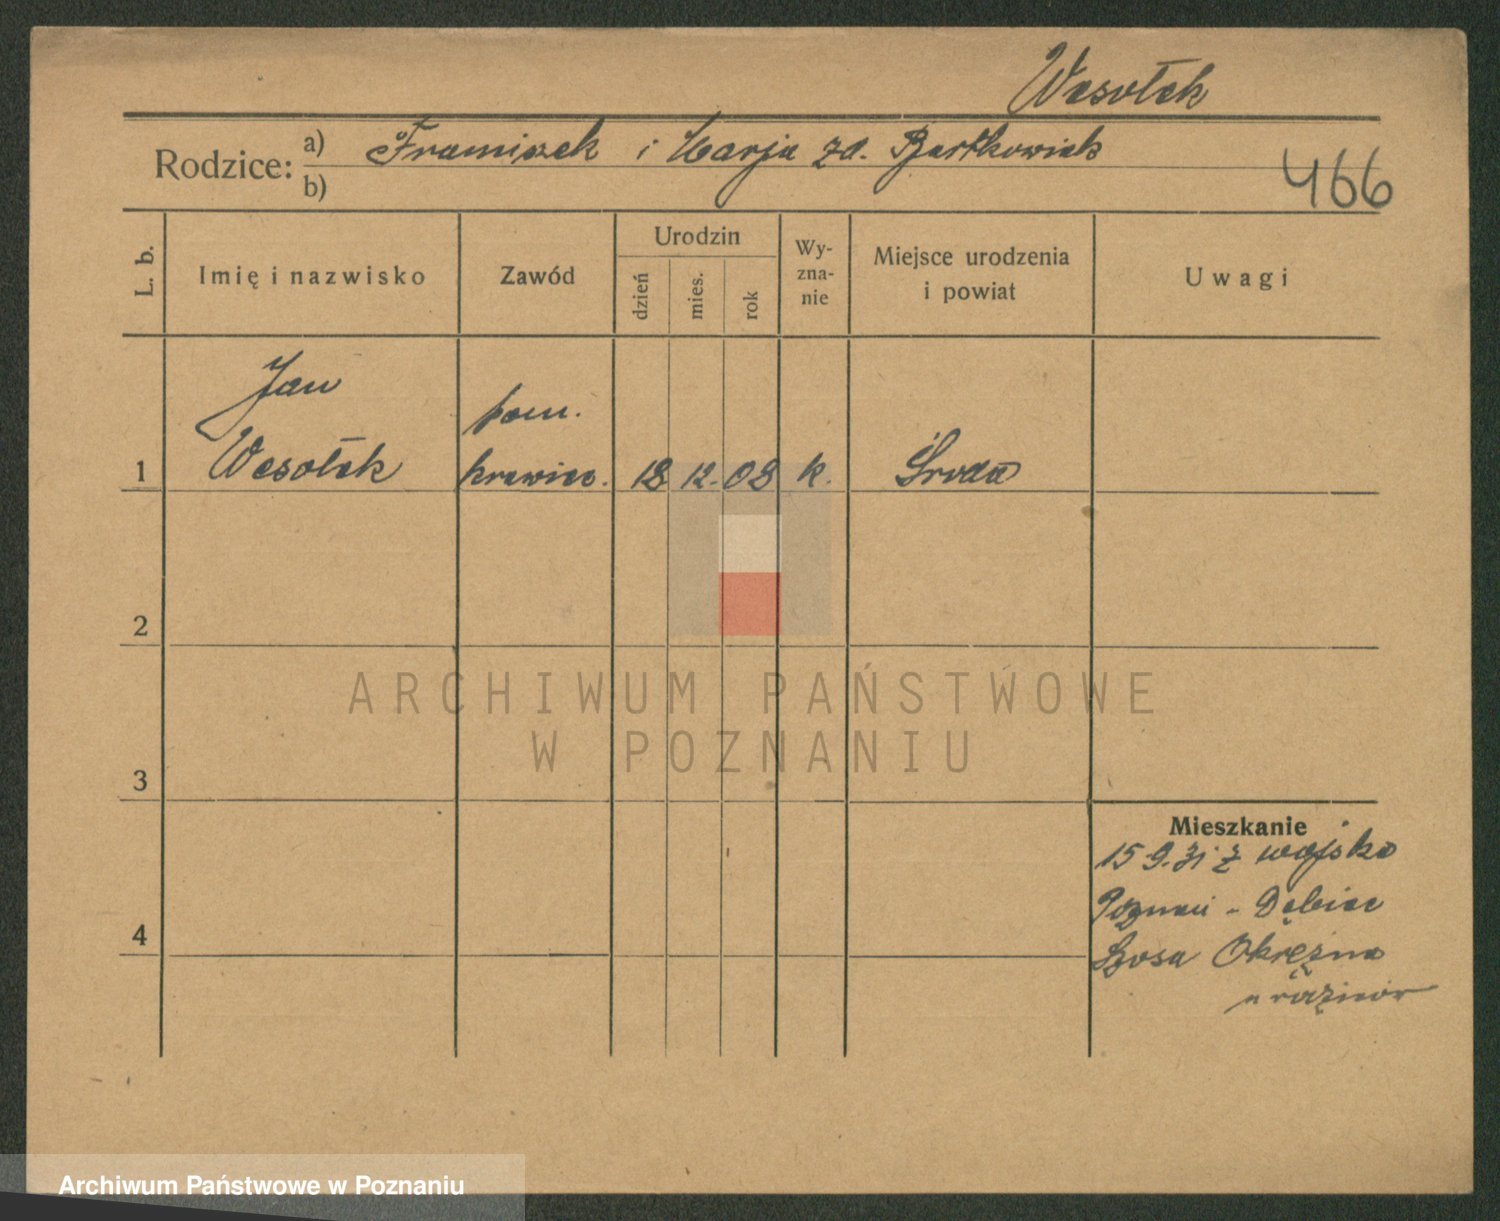 Wesołek
Rodzice: a) Franciszek i Marja zd. Bartkowiak
b)
466
L. b.
Imię i nazwisko
Zawód
Urodzin
dzień
mies.
rok
Wy-
zna-
nie
Miejsce urodzenia
i powiat
Uwagi
Jan
pom.
1 Wesołek krawiec. 18 12. 08 k. Środa
2
ARCHIWUM PAŃSTWOWE
W POZNANIU
3
Mieszkanie
15 9. 31 z wojska
Poznań - Dębiec
4
Szosa Okrężna
u rodziców
Archiwum Państwowe w Poznaniu